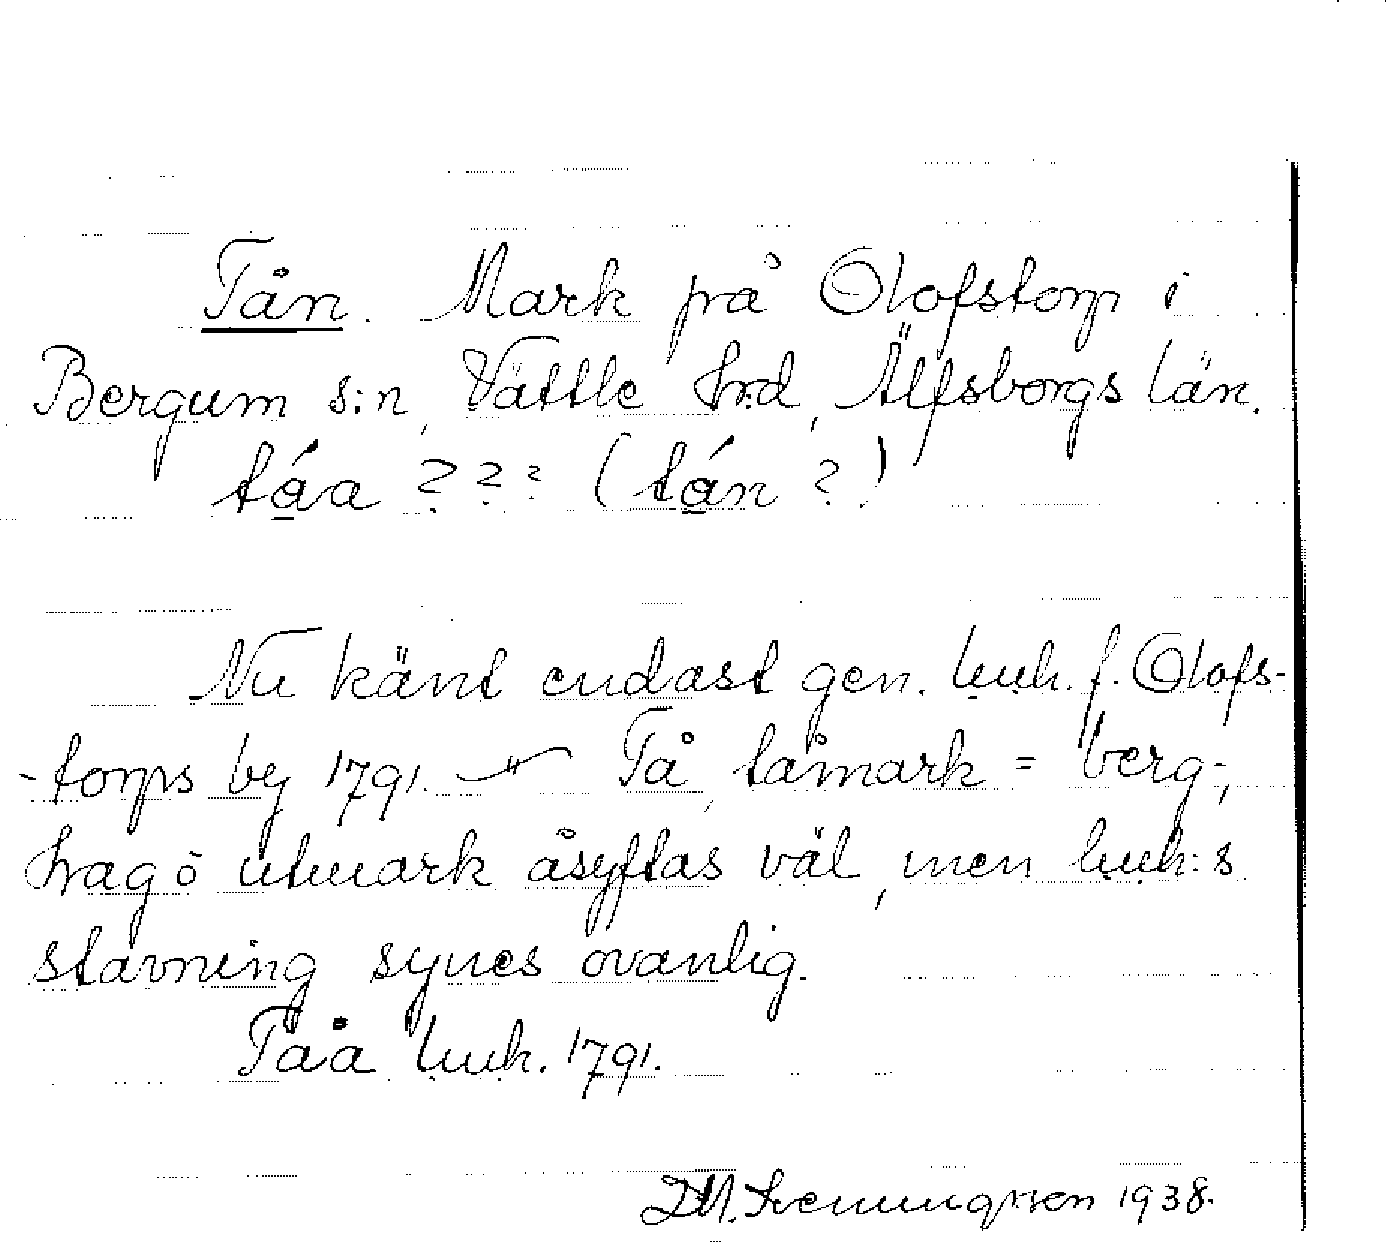 Tån. Mark på Olofstorp i
Bergum s:n, Vättle hrd, Älfsborgs län.
tá̱a ??? (tá̱n ?)
Nu känt endast gen. luh. f. Olofs-
-torps by 1791. Tå, tåmark = berg-,
hag o utmark åsyftas väl, men luh:s
stavning synes ovanlig.
Taå luh. 1791.
D.M. 1938.